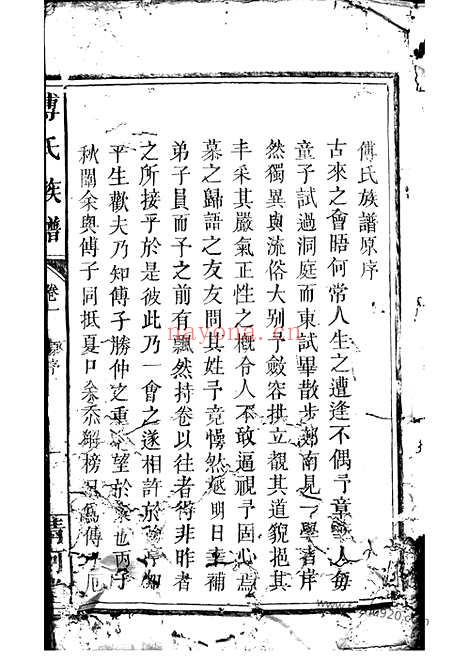 傅氏族譜原序
古來之會晤何常人生之遭逢不偶予章人每
童子試過洞庭而東試畢散步郊南見一學者岸
然獨異與流俗大别予斂容拱立觀其道貌挹其
丰采其嚴氣正性之概令人不敢逼視予固心焉
慕之歸語之友友問其姓予竟懵然延明日主補
弟子員而予之前有飄然持卷以往者得非昨者
之所接乎於是彼此乃一會之遂相許於
平生歡夫乃知傅子勝仲之重望於也丙子
秋闈余與傅子同抵夏口余忝解榜傅厄
傅氏族譜
卷一
序
nayona.com